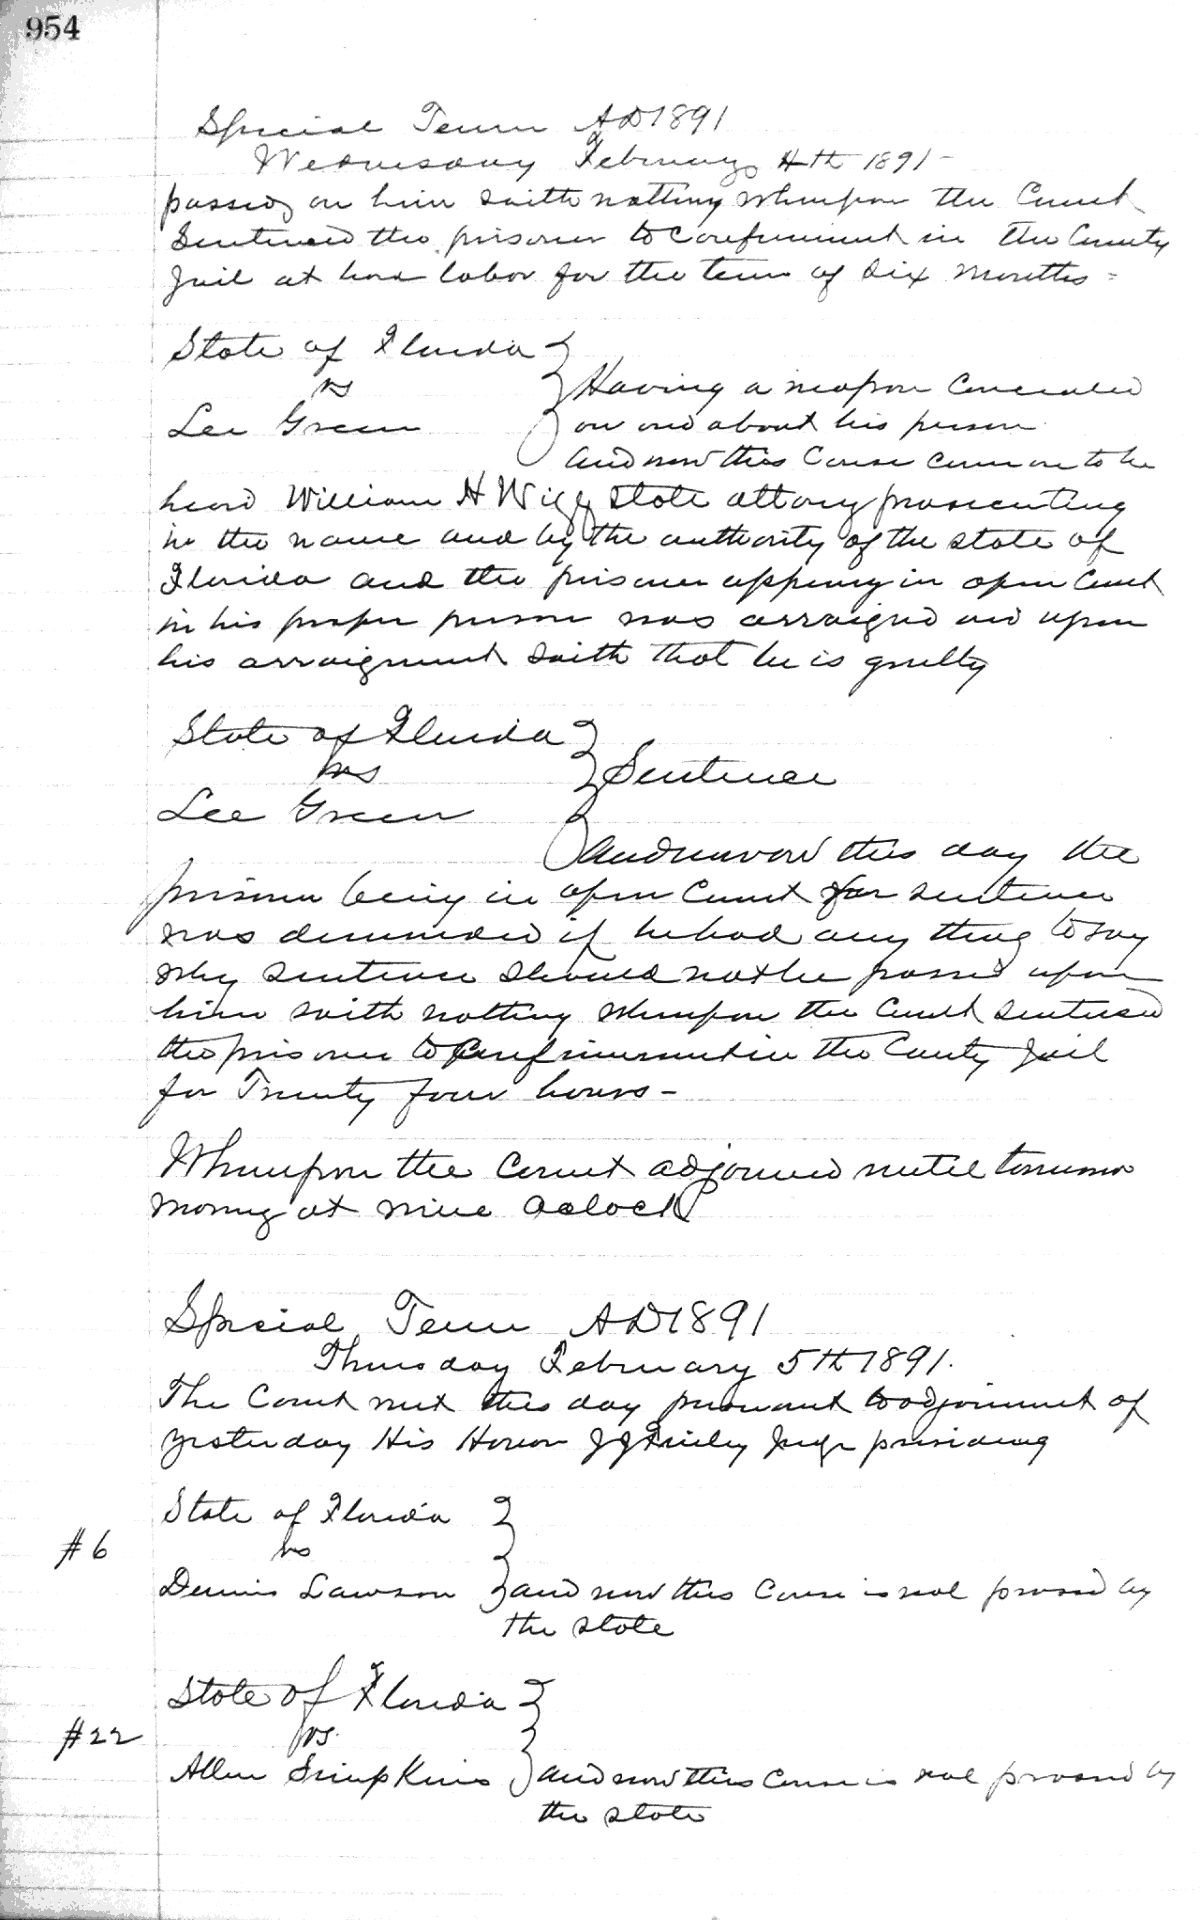 954
Special Term AD 1891
Wednesday February 4th 1891 -
passed on him saith nothing whereupon the Court
Sentenced the prisoner to confinement in the County
Jail at hard labor for the term of six months -
State of Florida
vs
Lee Green
Having a weapon Concealed
on and about his person
and now this Cause came on to be
heard William H Wigg State attorny prosecuting
in the name and by the authority of the state of
Florida and the prisoner appearing in open Court
in his proper person was arraigned and upon
his arraignment saith that he is guilty
State of Florida
vs
Lee Green
Sentence
and now on this day the
prisoner being in open Court for sentence
was demanded if he had any thing to say
why sentence should not be passed upon
him saith nothing whereupon the Court sentenced
the prisoner to Confinement in the County Jail
for Twenty four hours -
Whereupon the Court adjourned until tomorrow
morning at nine oclock
Special Term AD 1891
Thursday February 5th 1891.
The Court met this day pursuant to adjournment of
yesterday His Honor J J Finley Judge presiding
State of Florida
#6
vs
Dennis Lawson and now this Cause is nol prossed by
the state
State of Florida
#22
vs.
Allen Simpkins and now this Cause is nol prossed by
the state